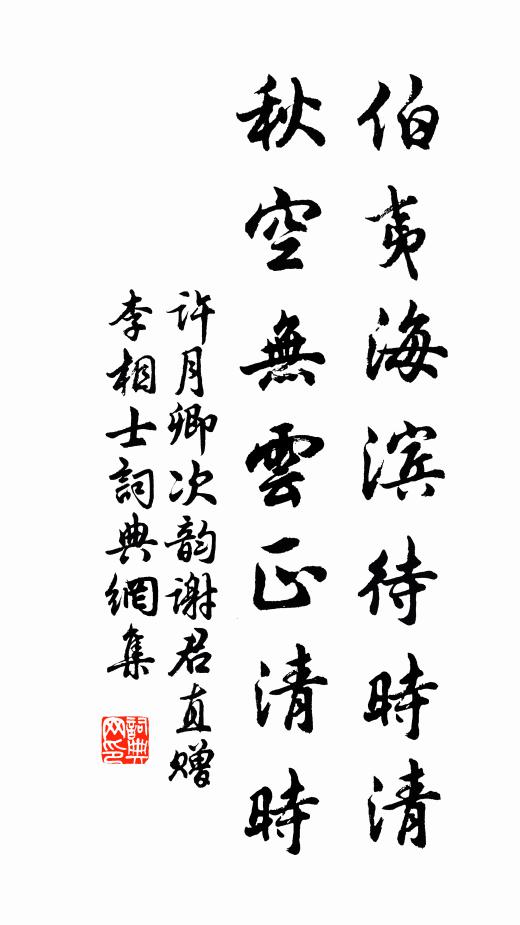 伯夷海滨待時清
秋空無雲正清時
许月卿次韵谢君直赠
李相士詞典網集
詞典网印